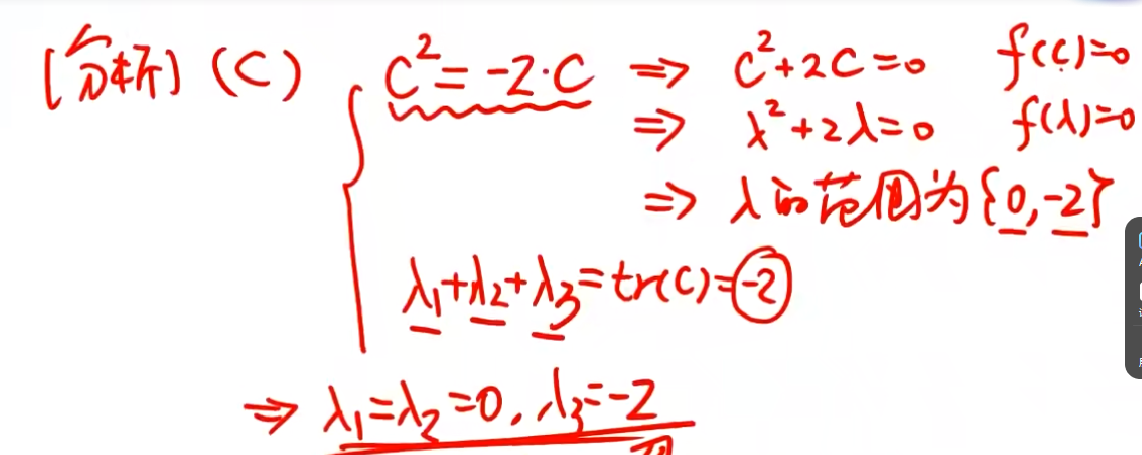 [分析] (C) C²=-2·C ⇒ C²+2C=0 f(C)=0
⇒ λ²+2λ=0 f(λ)=0
⇒ λ的范围为{0,-2}
λ₁+λ₂+λ₃=tr(C)=-2
⇒ λ₁=λ₂=0, λ₃=-2